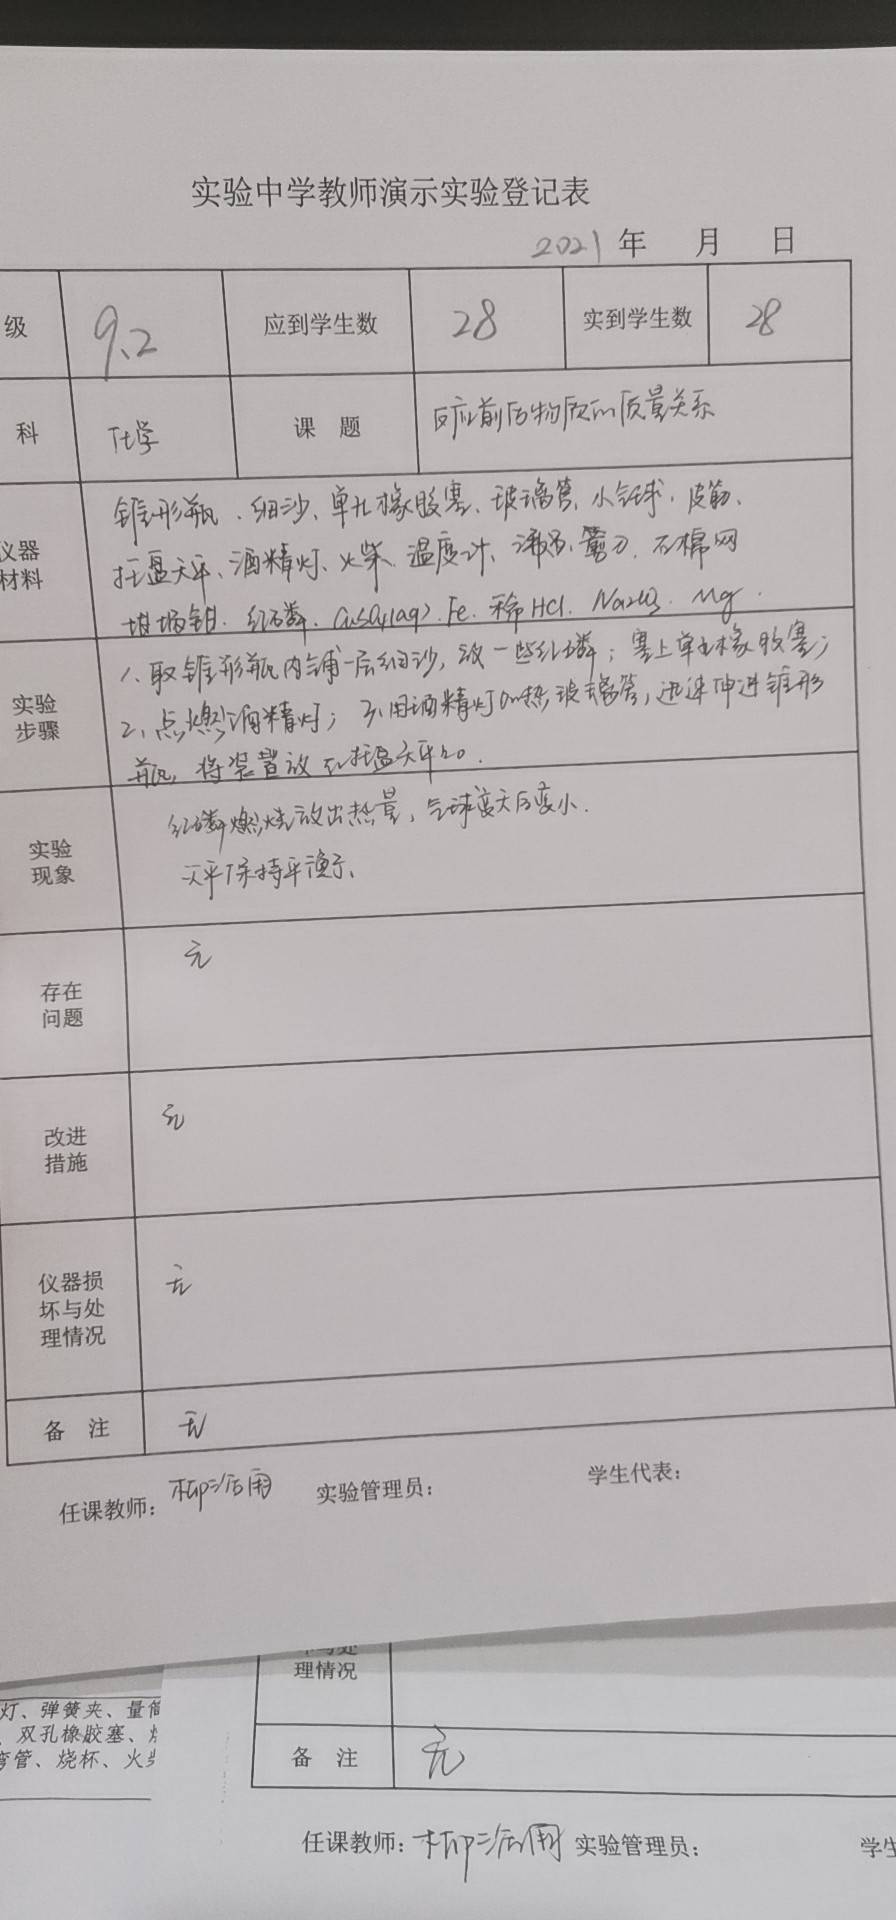 实验中学教师演示实验登记表
2021 年 月 日
级 9.2 应到学生数 28 实到学生数 28
科 化学 课 题 反应前后物质的质量关系
仪器
材料
锥形瓶、细沙、单孔橡胶塞、玻璃管、小气球、皮筋、
托盘天平、酒精灯、火柴、温度计、 剪刀、石棉网
坩埚钳、红磷、CuSO4(aq)、Fe、稀HCl、Na2CO3、Mg.
实验
步骤
1、取锥形瓶内铺一层细沙, 放一些红磷; 塞上单孔橡胶塞;
2、点燃酒精灯; 3、用酒精灯加热玻璃管, 迅速伸进锥形
瓶, 将装置放在托盘天平
实验
现象
红磷燃烧放出热量, 气球变大后变小.
天平保持平衡
存在
问题
无
改进
措施
无
仪器损
坏与处
理情况
无
备 注 无
任课教师: 实验管理员: 学生代表:
理情况
备 注 无
任课教师: 实验管理员: 学生
灯、弹簧夹、量筒
、双孔橡胶塞、
弯管、烧杯、火柴